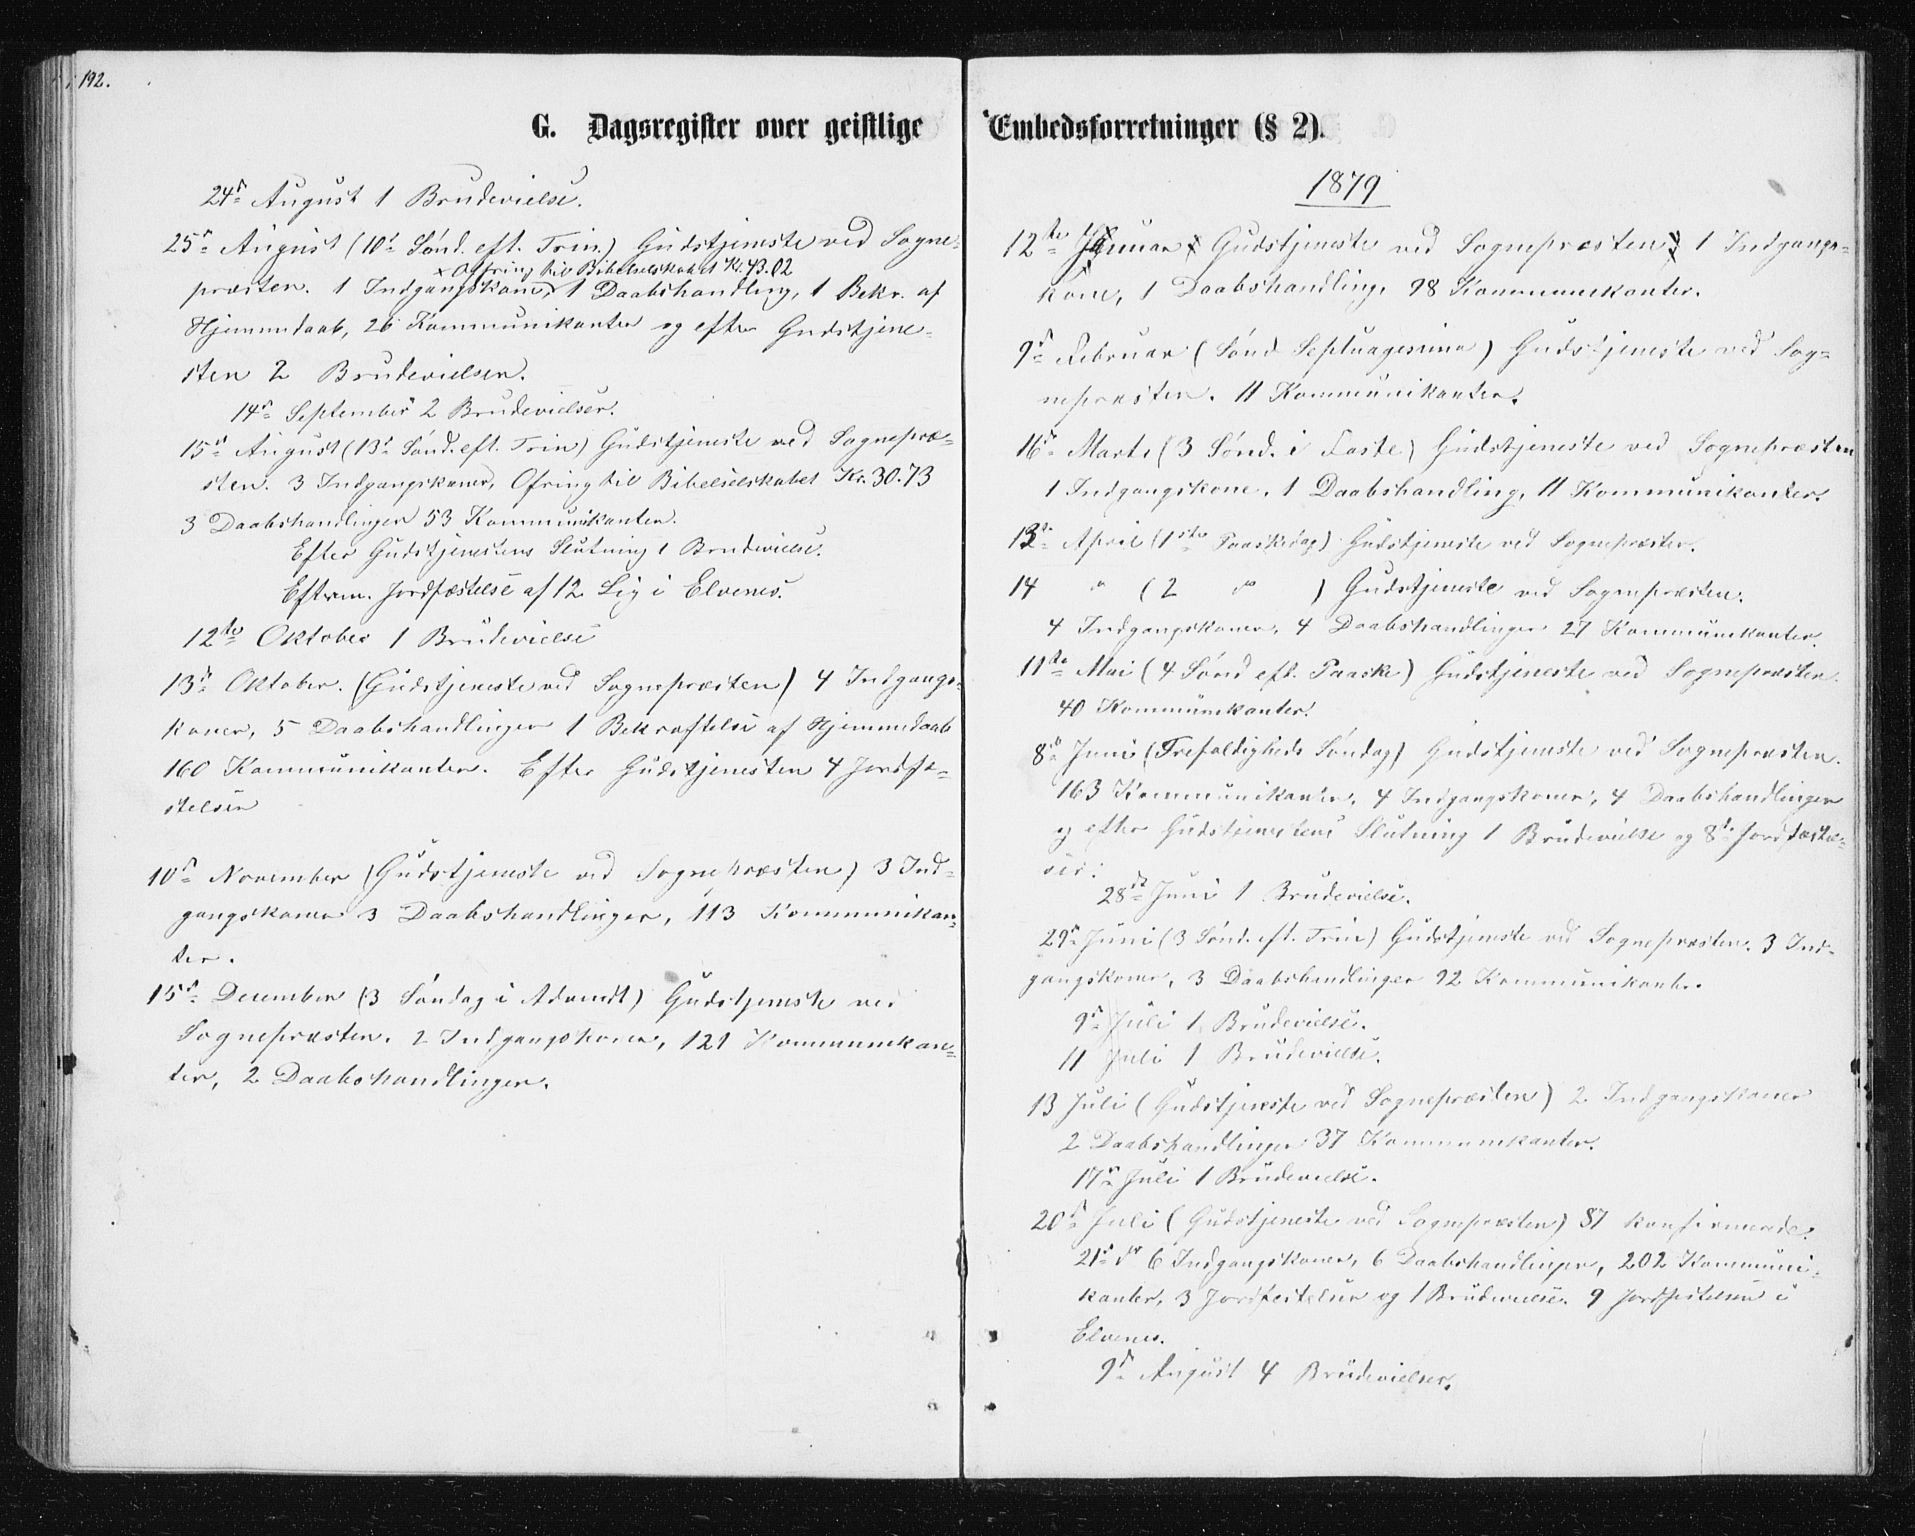 192.
G. Dagsregister over geistlige
24de August 1 Brudevielse.
25de August (10de Sønd. eft. Trin.) Gudstjeneste ved Sogne-
x Ofring til Bibelselskabet Kr. 43.02
præsten. 1 Indgangskone, x 1 Daabshandling, 1 Bekr. af
Hjemmedaab, 26 Kommunikanter og efter Gudstjene-
sten 2 Brudevielser.
14de September 2 Brudevielser.
15de August (13de Sønd. eft. Trin) Gudstjeneste ved Sognepræ-
sten. 3 Indgangskoner, Ofring til Bibelselskabet Kr. 30.73
3 Daabshandlinger 53 Kommunikanter.
Efter Gudstjenestens Slutning 1 Brudevielse.
Efterm. Jordfæstelse af 12 Lig i Elvenes.
12te Oktober 1 Brudevielse
13de Oktober. (Gudstjeneste ved Sognepræsten) 4 Indgangs-
koner, 5 Daabshandlinger 1 Bekræftelse af Hjemmedaab
160 Kommunikanter. Efter Gudstjenesten 4 Jordfæ-
stelser
10de November (Gudstjeneste ved Sognepræsten) 3 Ind-
gangskoner 3 Daabshandlinger, 113 Kommunikan-
ter.
15de December (3 Søndag i Advendt) Gudstjeneste ved
Sognepræsten. 2 Indgangskoner, 121 Kommunikan-
ter, 2 Daabshandlinger.
Embedsforretninger (§ 2).
1879
12te Januar Gudstjeneste ved Sognepræsten, 1 Indgangs-
kone, 1 Daabshandling, 98 Kommunikanter.
9de Februar (Sønd Septuagesima) Gudstjeneste ved Sog-
nepræsten. 11 Kommunikanter.
16de Marts (3 Sønd. i Faste) Gudstjeneste ved Sognepræsten
1 Indgangskone. 1 Daabshandling, 11 Kommunikanter.
13de April (1ste Paaskedag) Gudstjeneste ved Sognepræsten.
14 " (2 do ) Gudstjeneste ved Sognepræsten.
4 Indgangskoner, 4 Daabshandlinger 27 Kommunikanter.
11te Mai (4 Sønd eft. Paaske) Gudstjeneste ved Sognepræsten.
40 Kommunikanter.
8de Juni (Trefoldigheds Søndag) Gudstjeneste ved Sognepræsten.
163 Kommunikanter, 4 Indgangskoner, 4 Daabshandlinger
og efter Gudstjenestens Slutning 1 Brudevielse og 8de Jordfæstel-
ser.
28de Juni 1 Brudevielse.
29de Juni (3 Sønd. eft. Trin) Gudstjeneste ved Sognepræsten. 3 Ind-
gangskoner, 3 Daabshandlinger 92 Kommunikanter.
9de Juli 1 Brudevielse.
11 Juli 1 Brudevielse.
13 Juli (Gudstjeneste ved Sognepræsten) 2 Indgangskoner
2 Daabshandlinger 37 Kommunikanter.
17de Juli 1 Brudevielse.
20de Juli (Gudstjeneste ved Sognepræsten) 87 konfirmerede.
21de do 6 Indgangskoner, 6 Daabshandlinger, 202 Kommuni-
kanter, 3 Jordfestelser og 1 Brudevielse. 9 Jordfestelser i
Elvenes.
9de August 4 Brudevielser.